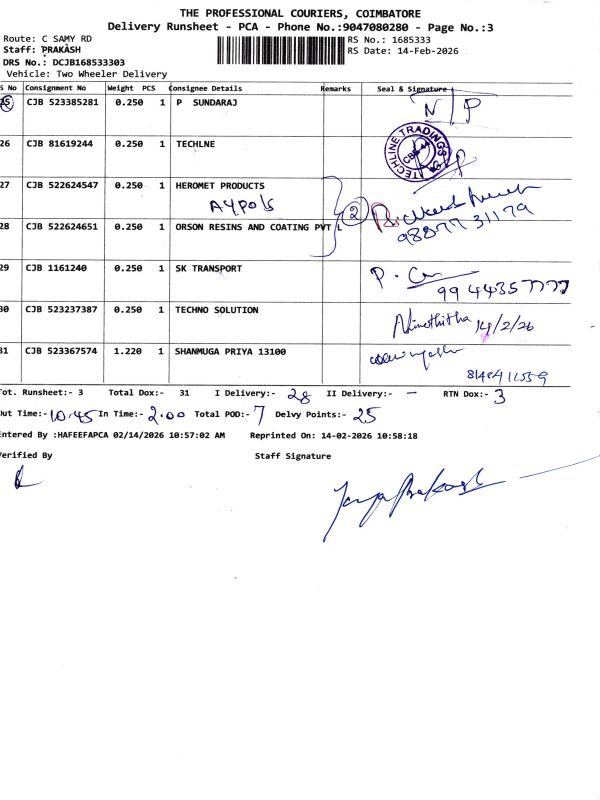 THE PROFESSIONAL COURIERS, COIMBATORE
Delivery Runsheet - PCA - Phone No.:9047080280 - Page No.:3
Route: C SAMY RD
RS No.: 1685333
Staff: PRAKASH
RS Date: 14-Feb-2026
DRS No.: DCJB168533303
Vehicle: Two Wheeler Delivery
S No Consignment No Weight PCS Consignee Details Remarks Seal & Signature
25 CJB 523385281 0.250 1 P SUNDARAJ N/P
26 CJB 81619244 0.250 1 TECHLNE
TECHLINE TRADINGS
27 CJB 522624547 0.250 1 HEROMET PRODUCTS
2
98877 31179
28 CJB 522624651 0.250 1 ORSON RESINS AND COATING PVT L
29 CJB 1161240 0.250 1 SK TRANSPORT
99 44357777
30 CJB 523237387 0.250 1 TECHNO SOLUTION
14/2/26
31 CJB 523367574 1.220 1 SHANMUGA PRIYA 13100
Tot. Runsheet:- 3 Total Dox:- 31 I Delivery:- 28 II Delivery:- - RTN Dox:- 3
Out Time:- 10.45 In Time:- 2.00 Total POD:- 7 Delvy Points:- 25
Entered By :HAFEEFAPCA 02/14/2026 10:57:02 AM Reprinted On: 14-02-2026 10:58:18
Verified By Staff Signature